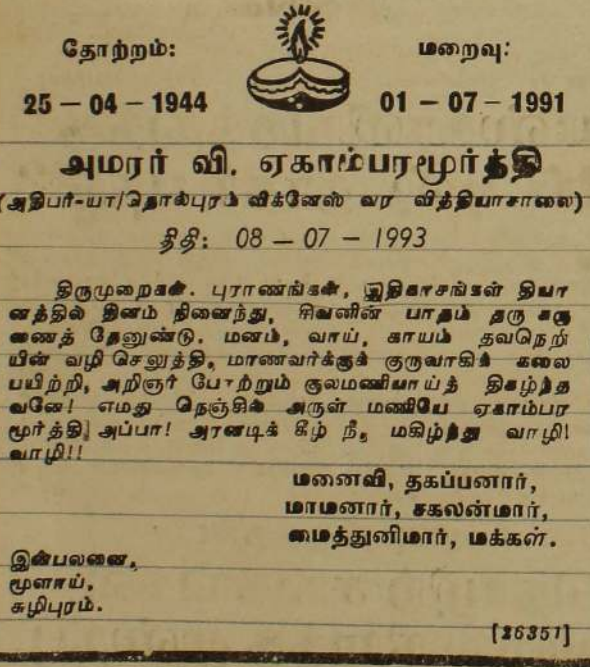 தோற்றம்: மறைவு:
25 – 04 – 1944 01 – 07 – 1991
அமரர் வி. ஏகாம்பரமூர்த்தி
(அதிபர்-யா/தொல்புரம் விக்னேஸ் வர வித்தியாசாலை)
திதி: 08 – 07 – 1993
திருமுறைகள். புராணங்கள், இதிகாசங்கள் தியா
னத்தில் தினம் நினைந்து, சிவனின் பாதம் தரு கரு
ணைத் தேனுண்டு. மனம், வாய், காயம் தவநெறி
யின் வழி செலுத்தி, மாணவர்க்குக் குருவாகிக் கலை
பயிற்றி, அறிஞர் போற்றும் குலமணியாய்த் திகழ்ந்த
வனே! எமது நெஞ்சில் அருள் மணியே ஏகாம்பர
மூர்த்தி அப்பா! அரனடிக் கீழ் நீ, மகிழ்ந்து வாழி!
வாழி!!
மனைவி, தகப்பனார்,
மாமனார், சகலன்மார்,
மைத்துனிமார், மக்கள்.
இன்பலனை,
மூளாய்,
சுழிபுரம்.
[26351]